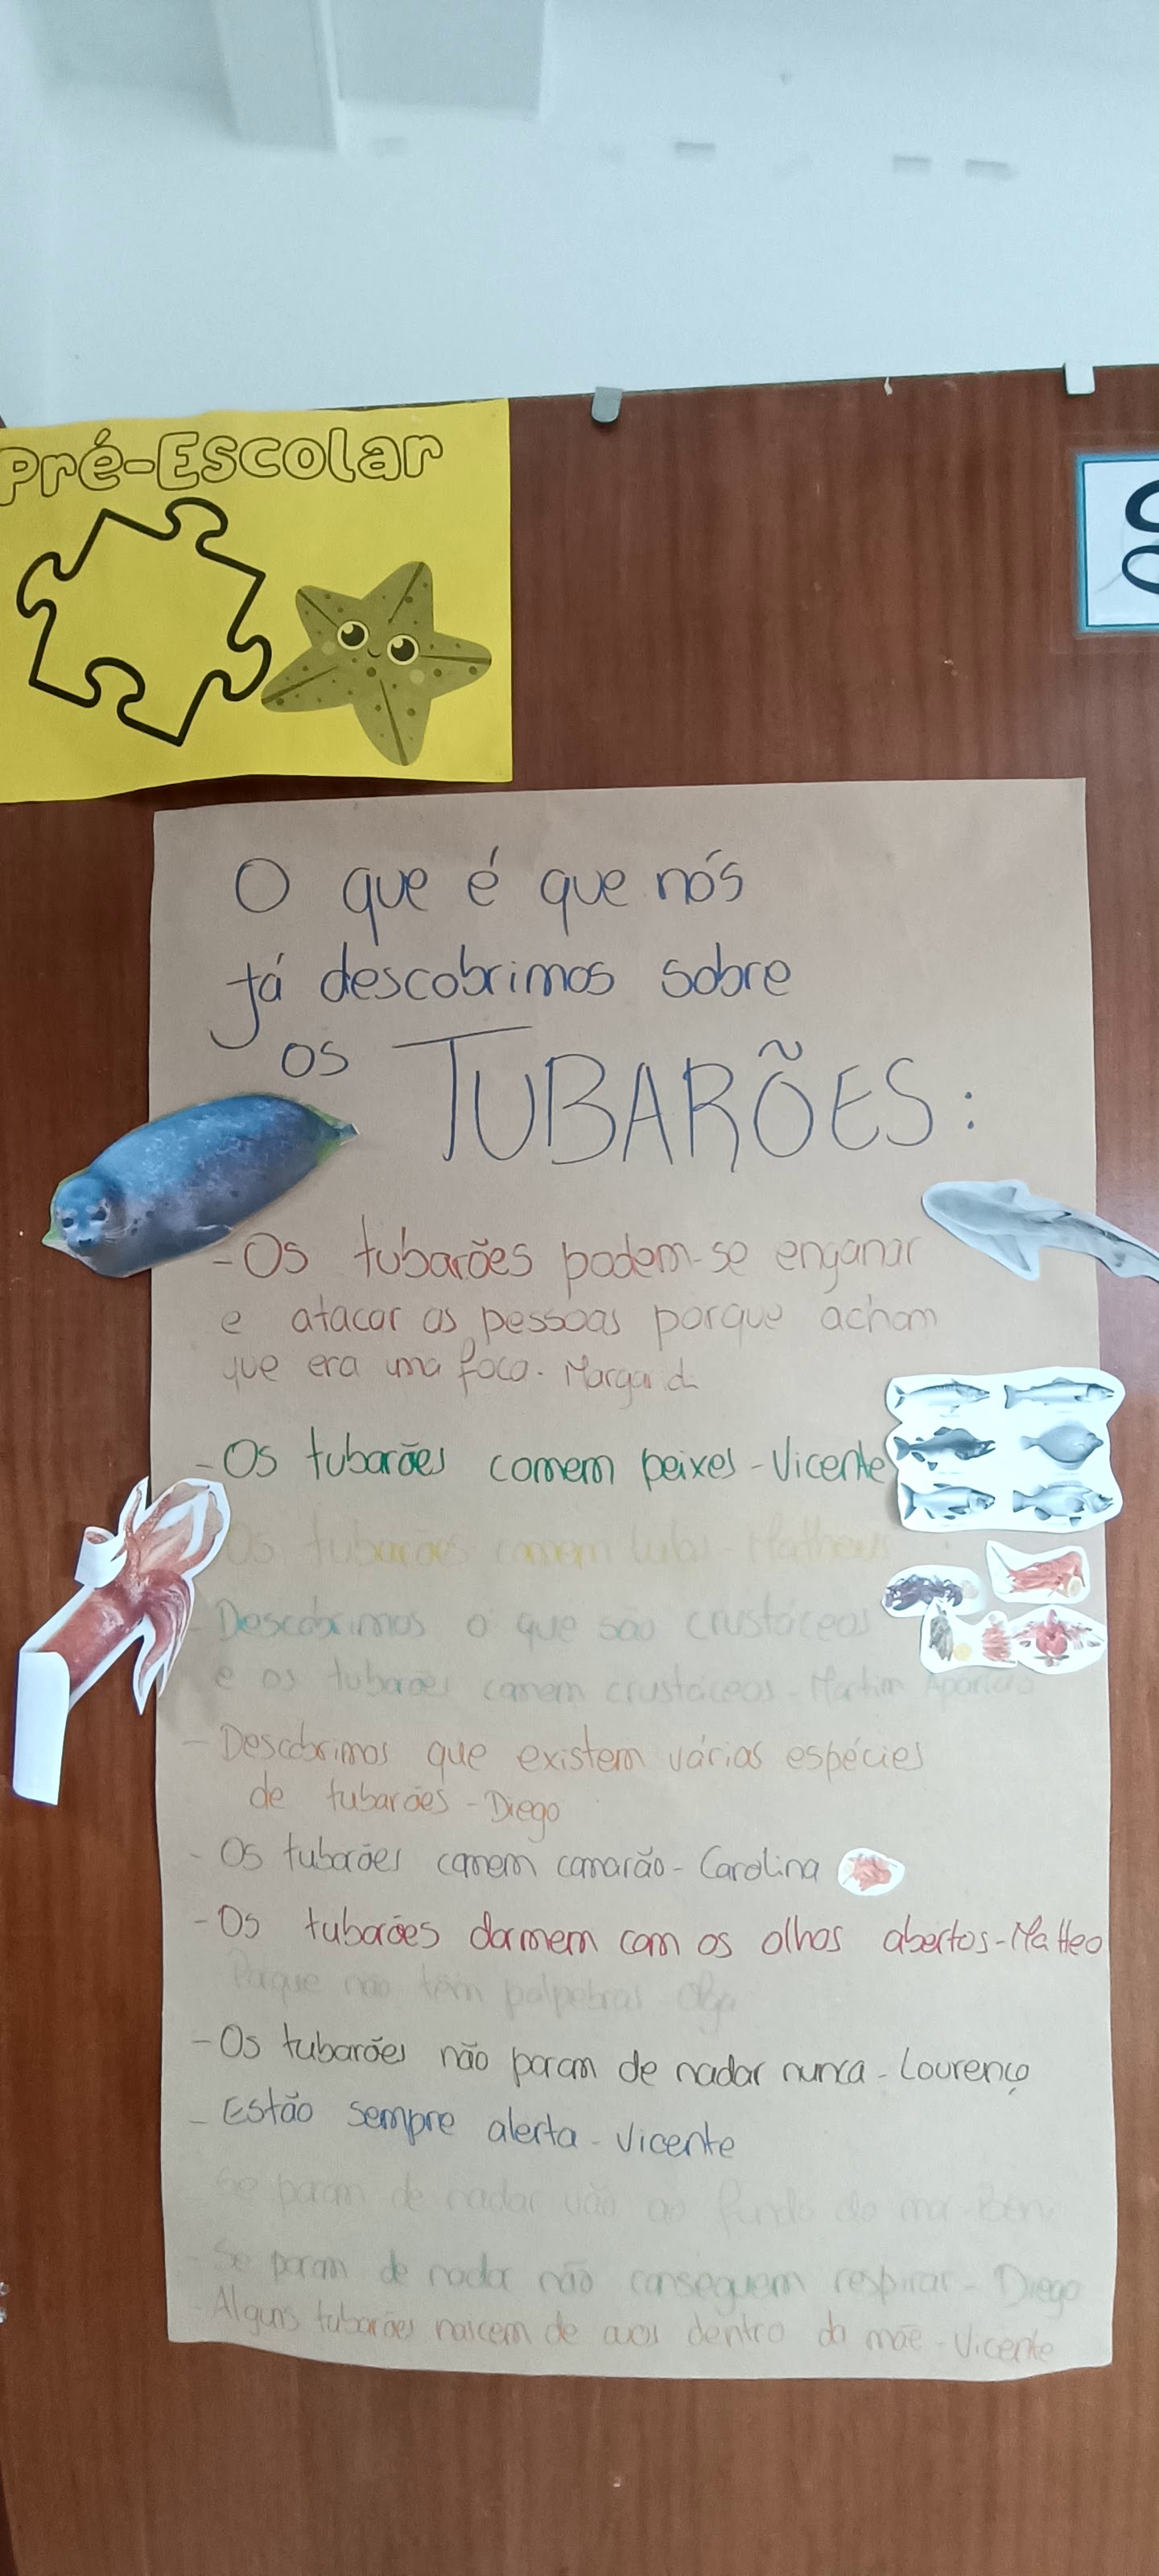 Pré-Escolar
O que é que nós
Já descobrimos sobre
os TUBARÕES:
-Os tubarões podem-se enganar
e atacar as pessoas porque acham
que era uma foca. Margarid
-Os tubarões comem peixes-Vicente
Os tubarões comem lulas-Matheus
- Descobrimos o que são crustáceos
e os tubarões comem crustáceos-Martim Aparício
- Descobrimos que existem várias espécies
de tubarões-Diego
- Os tubarões comem camarão-Carolina
-Os tubarões dormem com os olhos abertos-Matteo
Porque não têm palpebras-Olga
-Os tubarões não param de nadar nunca-Lourenço
- Estão sempre alerta-Vicente
Se param de nadar vão ao fundo do mar-Beni
- Se param de nadar não conseguem respirar-Diego
- Alguns tubarões nascem de ovos dentro da mãe-Vicente